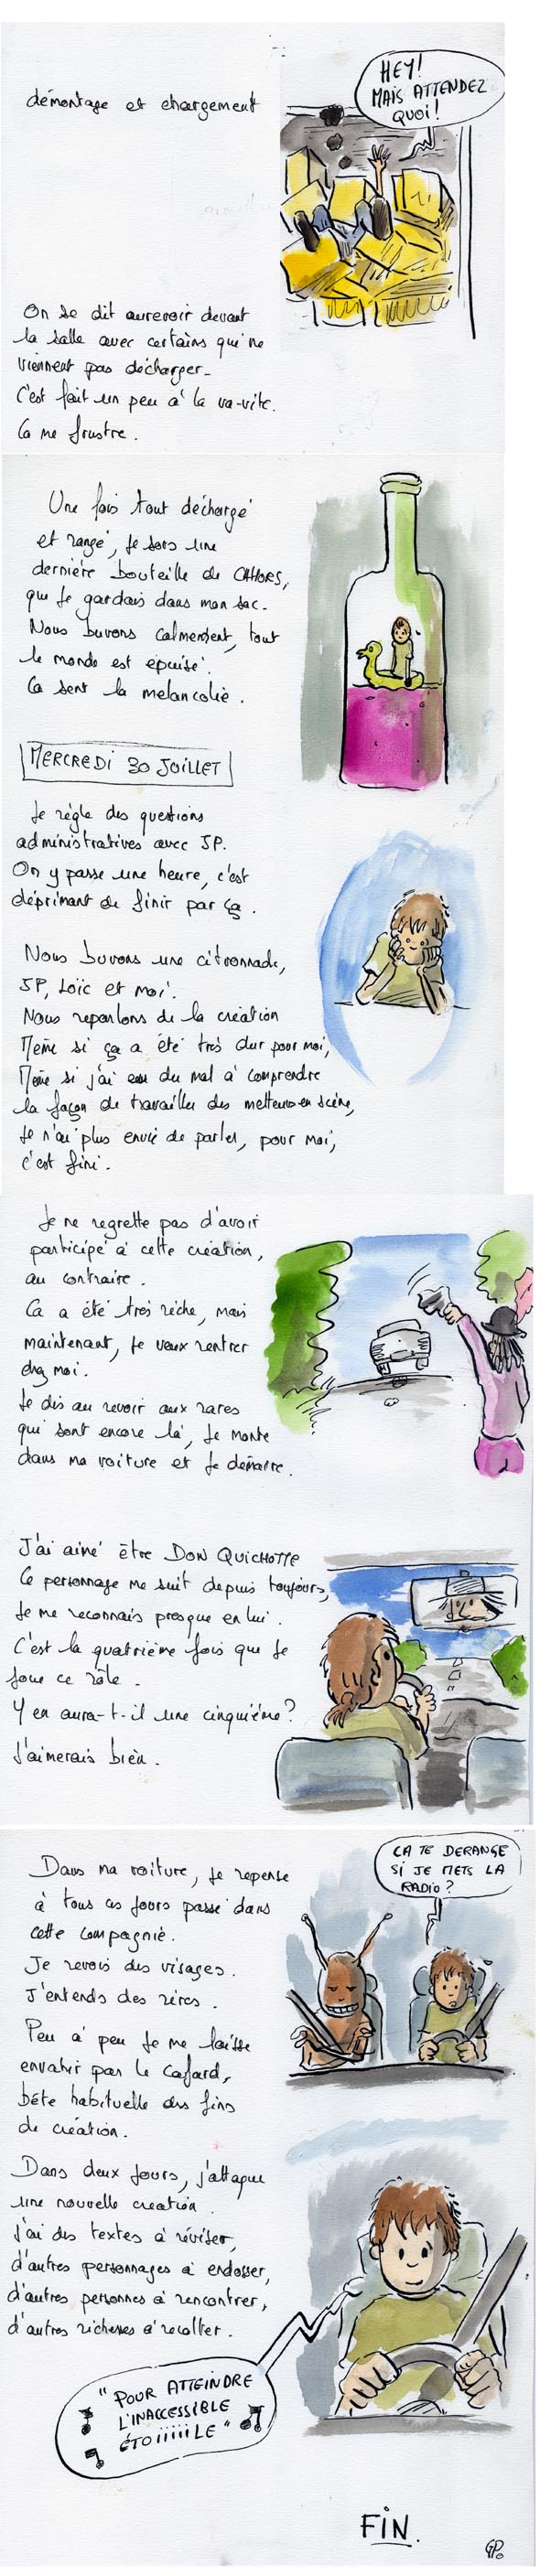 démontage et chargement
HEY!
MAIS ATTENDEZ
QUOI!
On se dit aurevoir devant
la salle avec certains qui ne
viennent pas décharger.
C'est fait un peu à la va-vite.
Ca me frustre.
Une fois tout déchargé
et rangé, je sors une
dernière bouteille de CAHORS,
que je gardais dans mon sac.
Nous buvons calmement, tout
le monde est épuisé.
Ca sent la melancolie.
MERCREDI 30 JUILLET
Je règle des questions
administratives avec JP.
On y passe une heure, c'est
déprimant de finir par ça.
Nous buvons une citronnade,
JP, Loïc et moi.
Nous reparlons de la création
Même si ça a été très dur pour moi,
Même si j'ai eu du mal à comprendre
la façon de travailler des metteurs en scène,
Je n'ai plus envie de parler, pour moi,
c'est fini.
Je ne regrette pas d'avoir
participé à cette création,
au contraire.
Ca a été très riche, mais
maintenant, je veux rentrer
chez moi.
Je dis au revoir aux rares
qui sont encore là, je monte
dans ma voiture et je démarre.
J'ai aimé être DON QUICHOTTE
Ce personnage me suit depuis toujours,
Je me reconnais presque en lui.
C'est la quatrième fois que je
joue ce rôle.
Y en aura-t-il une cinquième?
J'aimerais bien.
Dans ma voiture, je repense
à tous ces jours passé dans
cette compagnie.
Je revois des visages.
J'entends des rires.
Peu à peu je me laisse
envahir par le Cafard,
bête habituelle des fins
de création.
CA TE DERANGE
SI JE METS LA
RADIO?
Dans deux jours, j'attaque
une nouvelle création.
J'ai des textes à réviser,
d'autres personnages à endosser,
d'autres personnes à rencontrer,
d'autres richesses à récolter.
"POUR ATTEINDRE
L'INACCESSIBLE
ÉTOIIIIILE"
FIN.
GP.